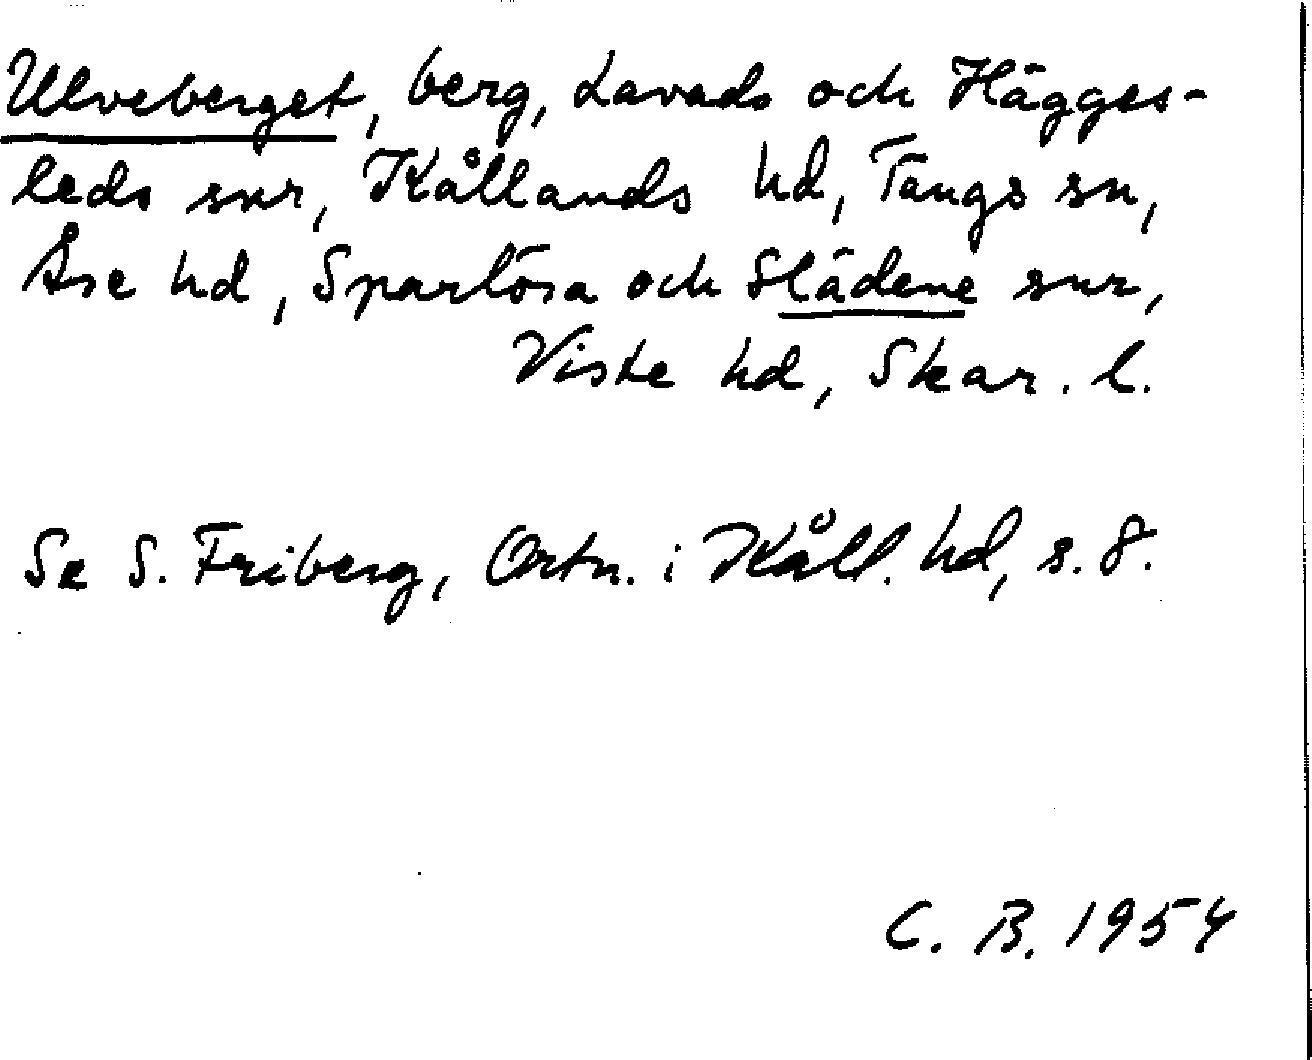 Ulveberget, berg, Lavads och Hägges-
leds snr, Kållands hd, Tengs sn,
Åse hd, Sparlösa och Slädene snr,
Viste hd, Skar. l.
Se S. Friberg, Ortn. i Kåll. hd, s. 8.
C. B. 1954